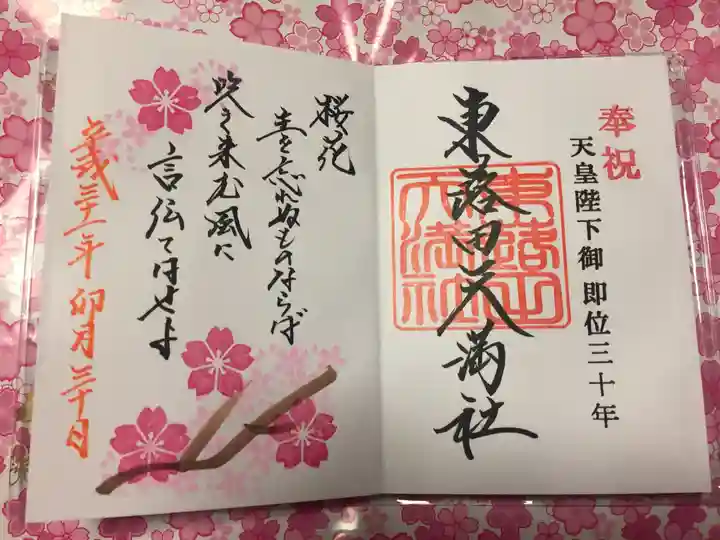 奉祝
天皇陛下御即位三十年
東蕗田天満社
東蕗田天満社
桜花
主を忘れぬものならば
吹き来む風に
言伝てはせよ
平成三十一年卯月三十日